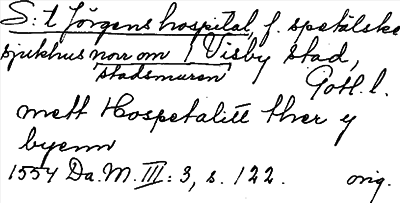 S:t Jörgens hospital, f. spetälske
sjukhus norr om Visby stad,
stadsmuren
Gotl. l.
mett Hospetalitt ther y
byenn
1554 Da. M. III: 3, s. 122. orig.